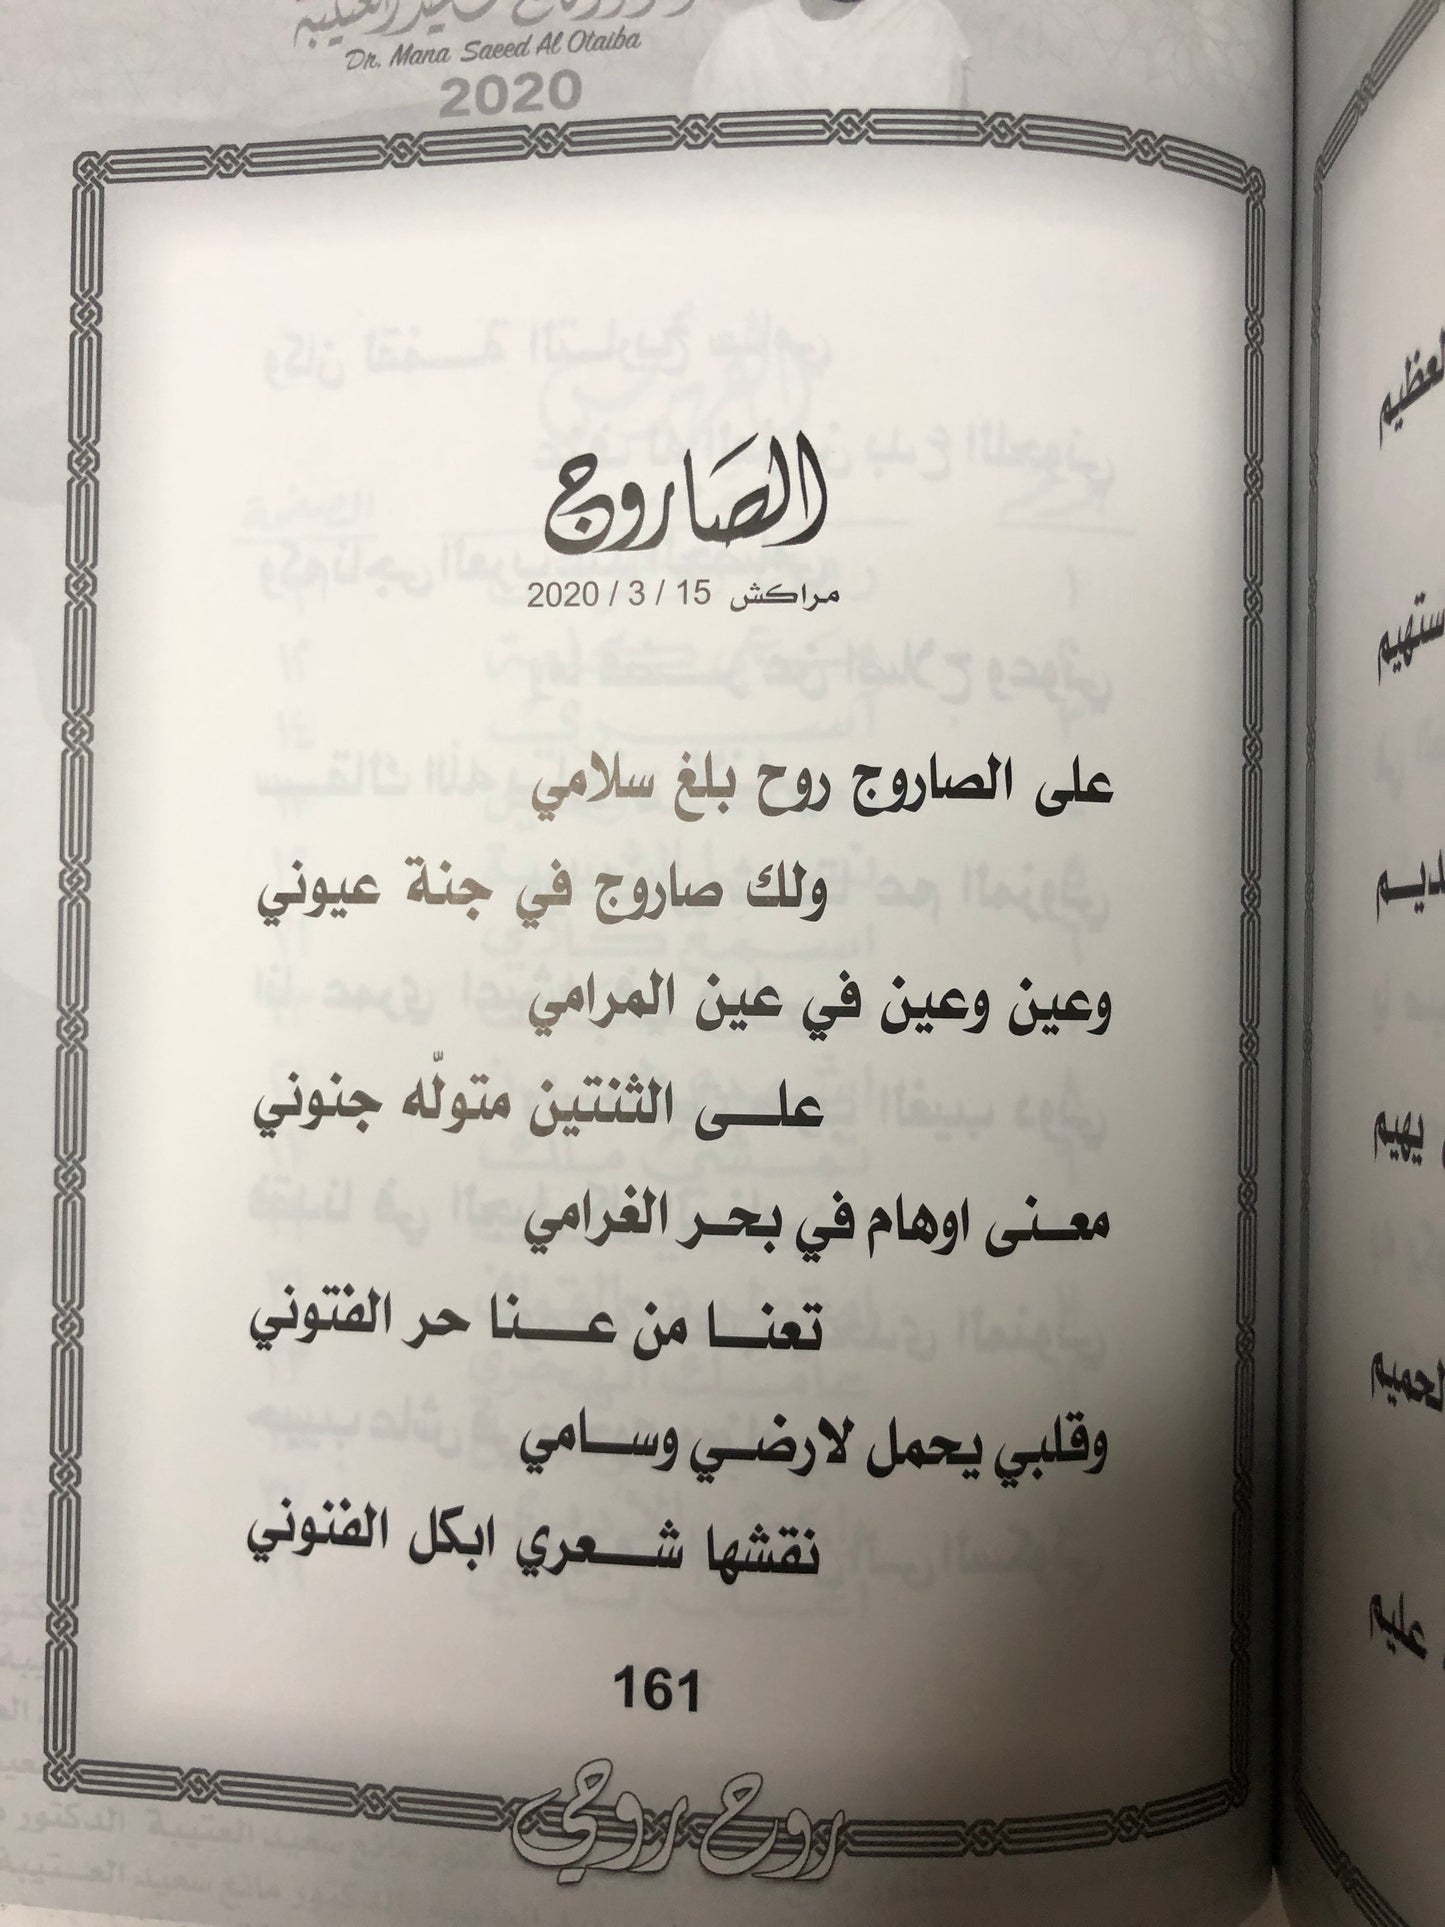 Dr. Mana Saeed Al Otaiba
2020
الصَاروج
مراكش 15 / 3 / 2020
على الصاروج روح بلغ سلامي
ولك صاروج في جنة عيوني
وعين وعين في عين المرامي
علـى الثنتين متولّه جنوني
معـنى اوهام في بحـر الغرامي
تعنـا من عـنا حر الفتوني
وقلبي يحمل لارضـي وسـامي
نقشها شـعري ابكل الفنوني
161
روح روحي